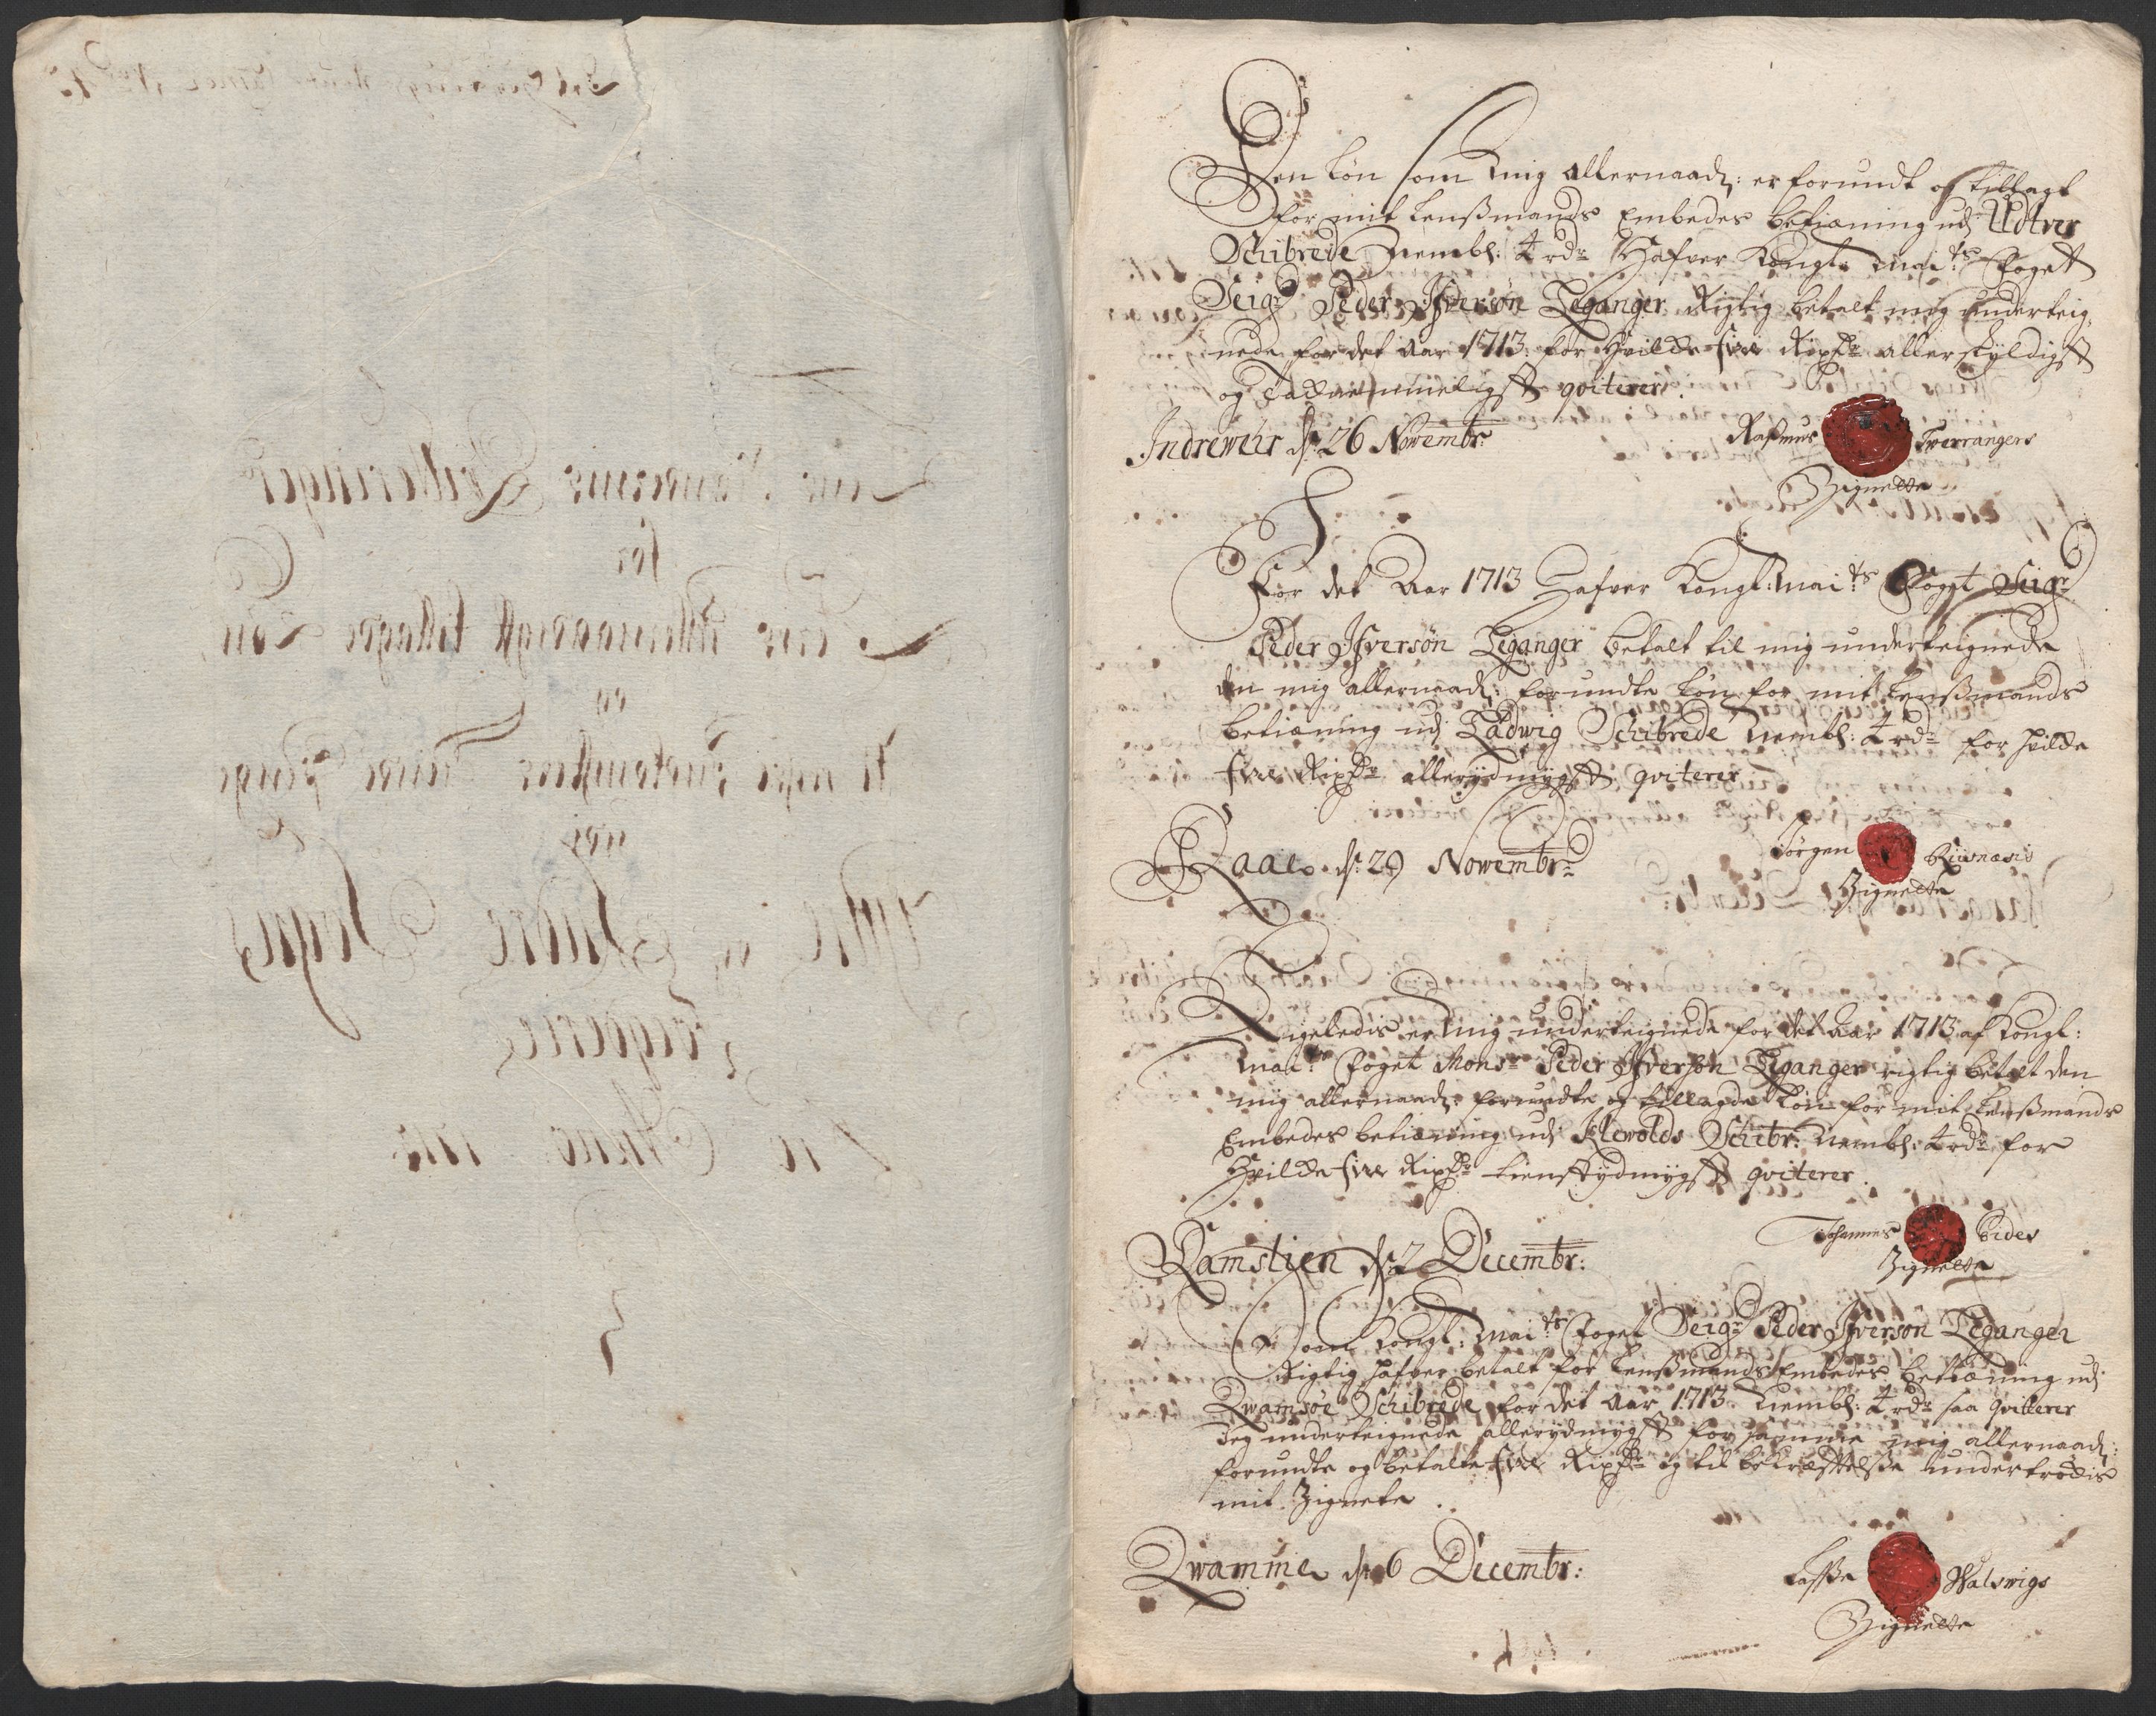 Den Løn som mig allernaad: er forundt og tillagt
for mit Lensmands Embedes betiening udj Udtver
Schibrede Nembl: 4 rdr Hafver Kongl: Mai:ts Foget
Seigr Peder Ifversøn Leganger Rigtig betalt mig underteig,
nede for det Aar 1713: for hvilke fire Rixdr allerskyldigst
og taknemmeligst qviterer.
Indrewehr dn 26 Novembr:
Rasmus Tverrangers
Zignette
For det Aar 1713 Hafver Kongl: Mai:ts Foget Seigr
Peder Ifversøn Leganger betalt til mig underteignede
den mig allernaad: forundte Løn for mit Lensmands
betiening udj Ladwig Schibrede Nembl: 4 rdr for hvilke
fire Rixdr allerydmygst qviterer
Raae dn 29 Novembr:
Jørgen Riisnæsis
Zignette
Ligeledis er mig underteignede for det Aar 1713 af Kongl:
Mai:ts Foget Monsr Peder Ifversøn Leganger rigtig betalt den
mig allernaad: forundte og tillagde Løn for mit Lensmands
Embedes betiening udj Klewolds Schibr: Nembl: 4 rdr for
Hvilke fire Rixdr tienstydmygst qviterer.
Wamstien dn 2 Decembr:
Johannes Eides
Zignette
Som Kongl: Mai:ts Foget Seigr Peder Ifversøn Leganger
Rigtig hafver betalt for Lensmands Embedes betiening udj
Qwamsøe Schibrede for det Aar 1713 Nembl: 4 rdr saa qvitterer
Jeg underteignede allerydmygst for samme mig allernaad:
forundte og betalte fire Rixdr og til bekreftelse undertrøkis
mit Zignete.
Qwamme dn 6 Decembr:
Lasse Walswigs
Zignette